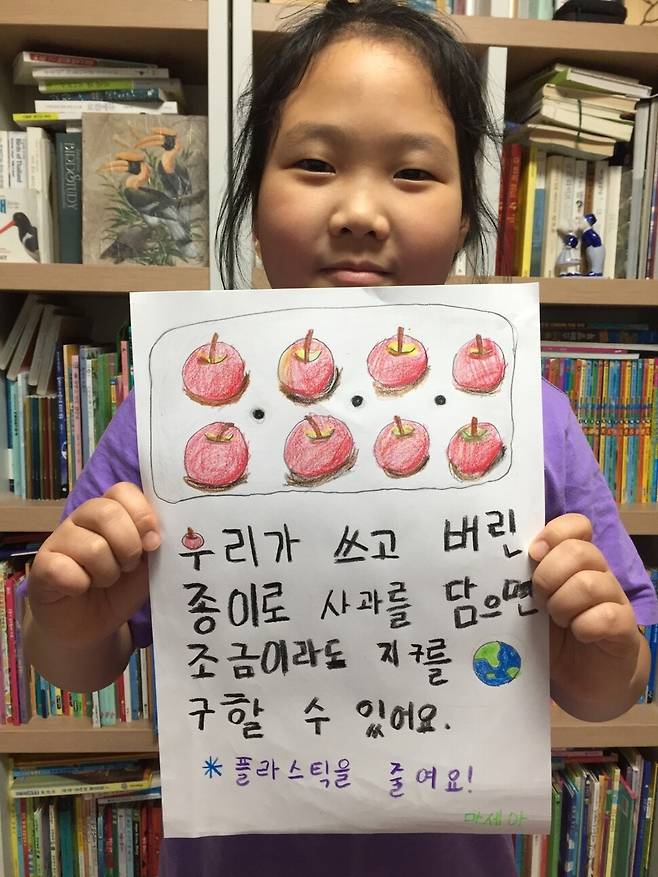 BIRD STUDY
우리가 쓰고 버린
종이로 사과를 담으면
조금이라도 지구를
구할 수 있어요.
* 플라스틱을 줄여요!